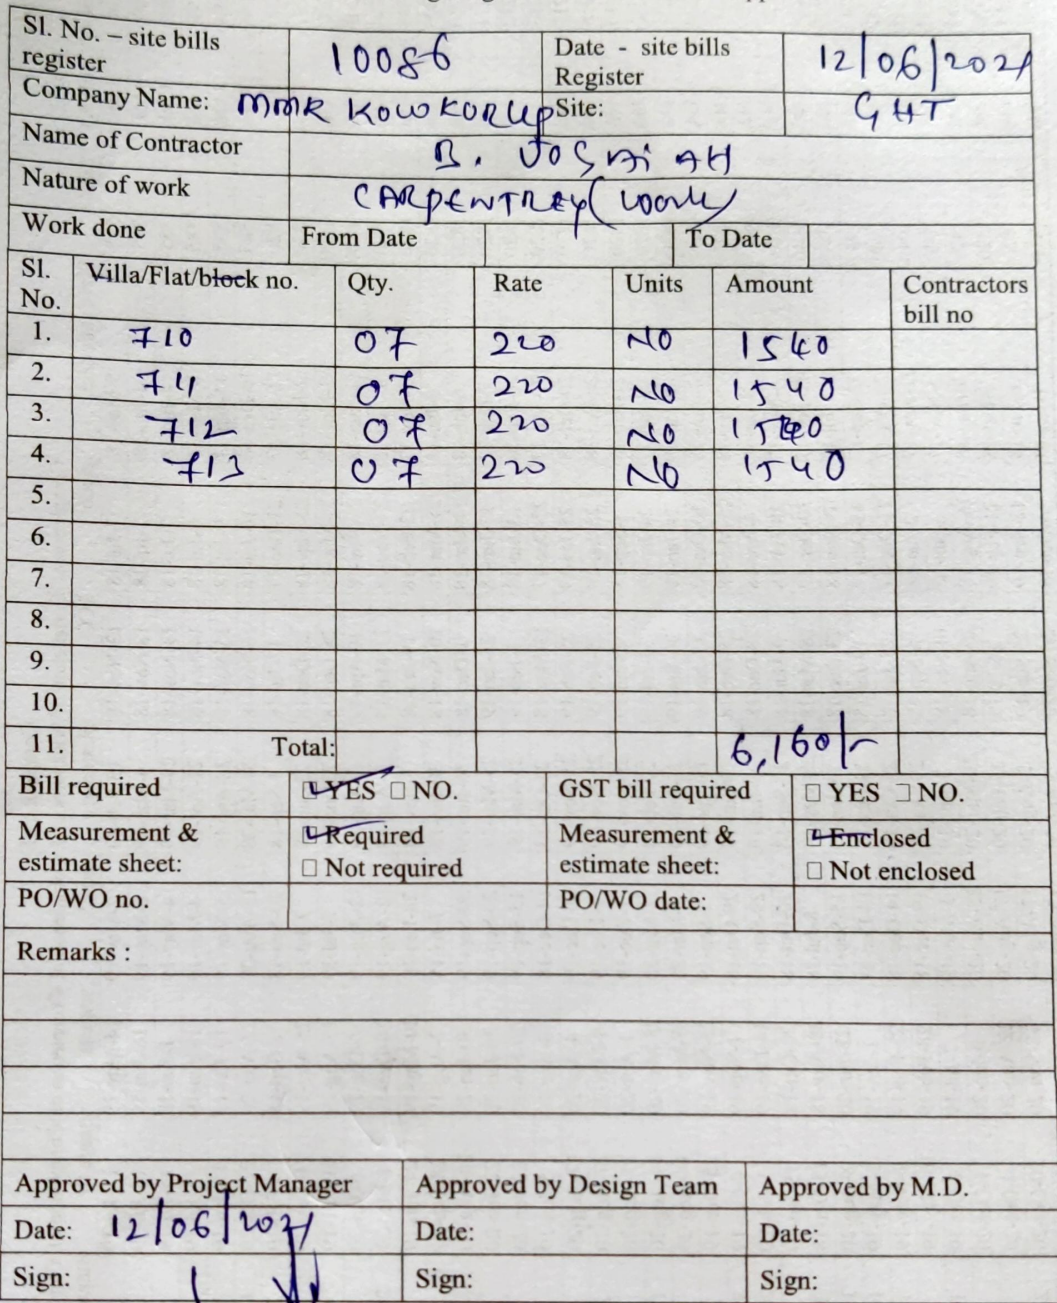 Sl. No. – site bills register 10086 Date - site bills Register 12/06/2021
Company Name: MMR KOWKORUP Site: GHT
Name of Contractor B. JOSHiAH
Nature of work CARPENTREY (work)
Work done From Date To Date
Sl. No. Villa/Flat/block no. Qty. Rate Units Amount Contractors bill no
1. 710 07 220 NO 1540
2. 711 07 220 NO 1540
3. 712 07 220 NO 1540
4. 713 07 220 NO 1540
5.
6.
7.
8.
9.
10.
11. Total: 6,160/-
Bill required ☑ YES ☐ NO. GST bill required ☐ YES ☐ NO.
Measurement & estimate sheet: ☑ Required ☐ Not required Measurement & estimate sheet: ☑ Enclosed ☐ Not enclosed
PO/WO no. PO/WO date:
Remarks :
Approved by Project Manager Approved by Design Team Approved by M.D.
Date: 12/06/2021 Date: Date:
Sign: Sign: Sign: